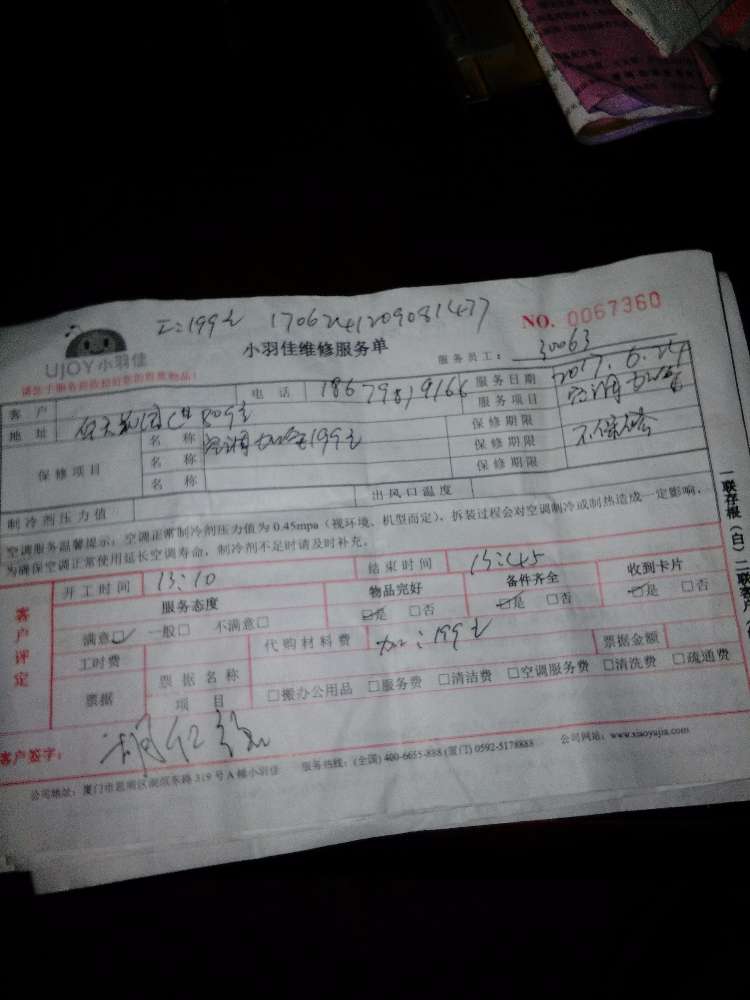 工:199元 1706241209081477
NO. 0067360
UJOY小羽佳
小羽佳维修服务单
服务员工: 30063
客 户
电 话 18679819166
服务日期 2017.6.24
地 址
809
服务项目 空调加氨
保修项目
名 称 199元
保修期限 不保修
名 称
保修期限
名 称
保修期限
制冷剂压力值
出风口温度
空调服务温馨提示:空调正常制冷剂压力值为 0.45mpa(视环境、机型而定),拆装过程会对空调制冷或制热造成一定影响,
为确保空调正常使用延长空调寿命,制冷剂不足时请及时补充。
开工时间 13:10
结束时间 15:45
客户评定
服务态度
物品完好
备件齐全
收到卡片
满意☑ 一般□ 不满意□
☑是 □否
☑是 □否
☑是 □否
工时费
代购材料费 199元
票据金额
票据
票据名称
项 目
□搬办公用品 □服务费 □清洁费 □空调服务费 □清洗费 □疏通费
客户签字:
公司地址:厦门市思明区 319 号 A 幢小羽佳 服务热线:(全国) 400-6655-888 (厦门) 0592-5178888 公司网站:www.xiaoyujia.com
一联存根(白)二联客